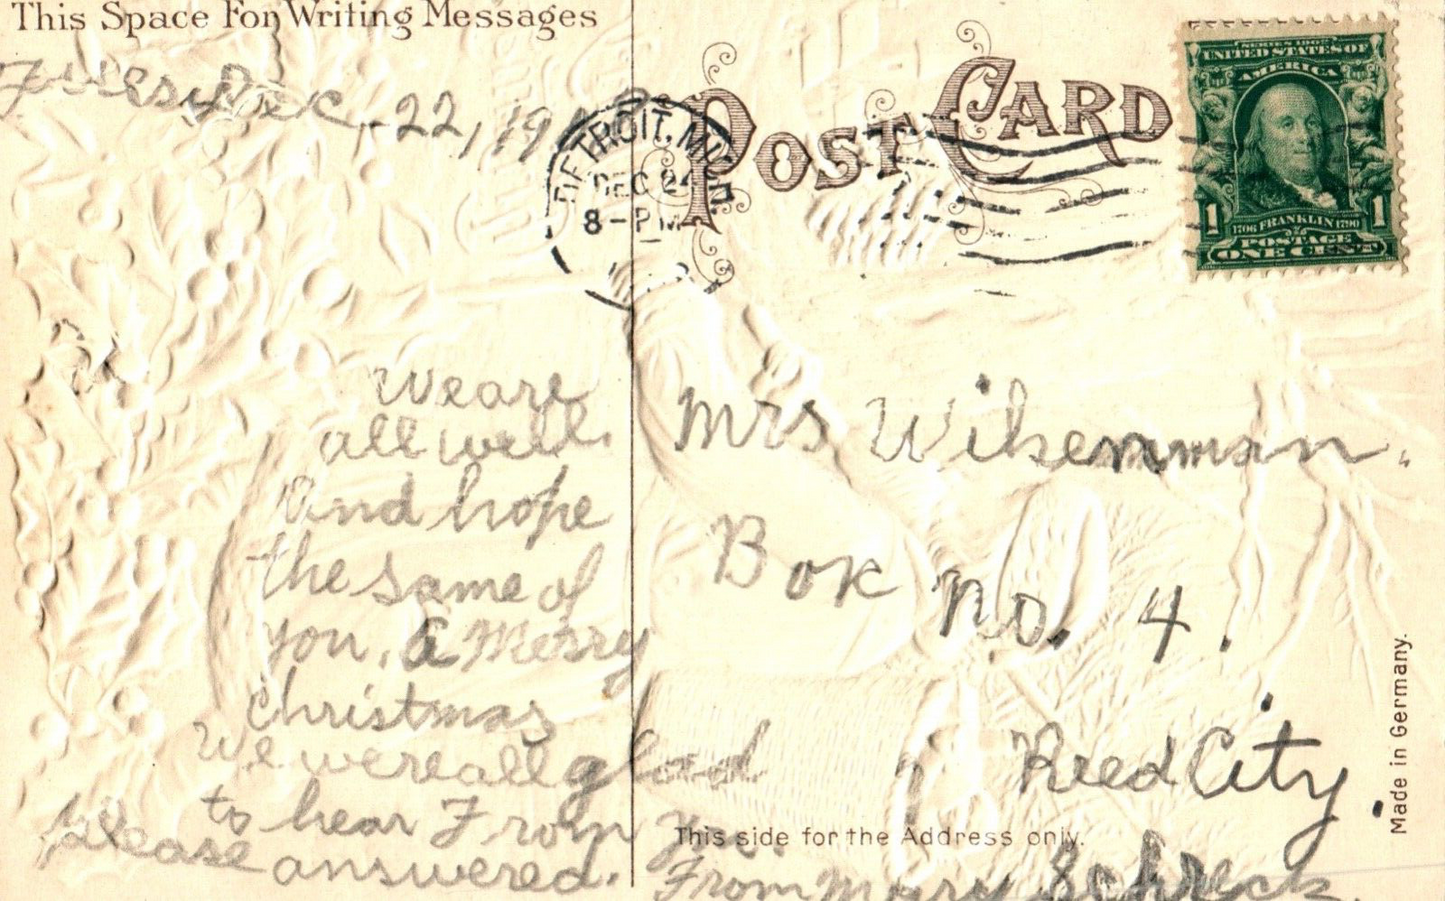 This Space For Writing Messages
Dec. 22, 19
We are
all well.
and hope
the same of
you, a Merry
Christmas
We were all glad
to hear From you.
please answered.
From Mary Schreck
POST CARD
DETROIT, MICH.
DEC 24
8-PM
SERIES 1902
UNITED STATES OF
AMERICA
1 1
1706 FRANKLIN 1790
POSTAGE
ONE CENT
Mrs Wikenman.
Box No. 4.
Reed City.
This side for the Address only.
Made in Germany.